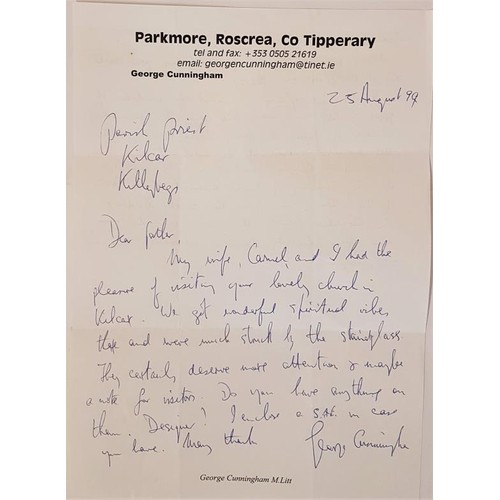 Parkmore, Roscrea, Co Tipperary
tel and fax: +353 0505 21619
email: georgencunningham@tinet.ie
George Cunningham
25 August 99
Parish Priest
Kilcar
Killybegs
Dear Father,
My wife, Carmel, and I had the
pleasure of visiting your lovely church in
Kilcar. We got wonderful spiritual vibes
there and were much struck by the stainglass.
They certainly deserve more attention & maybe
a note for visitors. Do you have anything on
them. Designer? I enclose a S.A.E. in case
you have. Many thanks George Cunningham
George Cunningham M.Litt